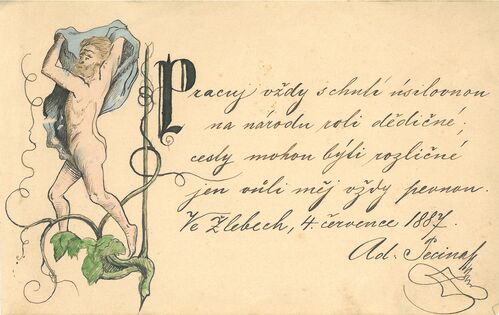 Pracuj vždy s chutí úsilovnou
na národu roli dědičné;
cesty mohou býti rozličné
jen vůli měj vždy pevnou.
Ve Žlebech, 4. července 1887.
Ad. Pecina